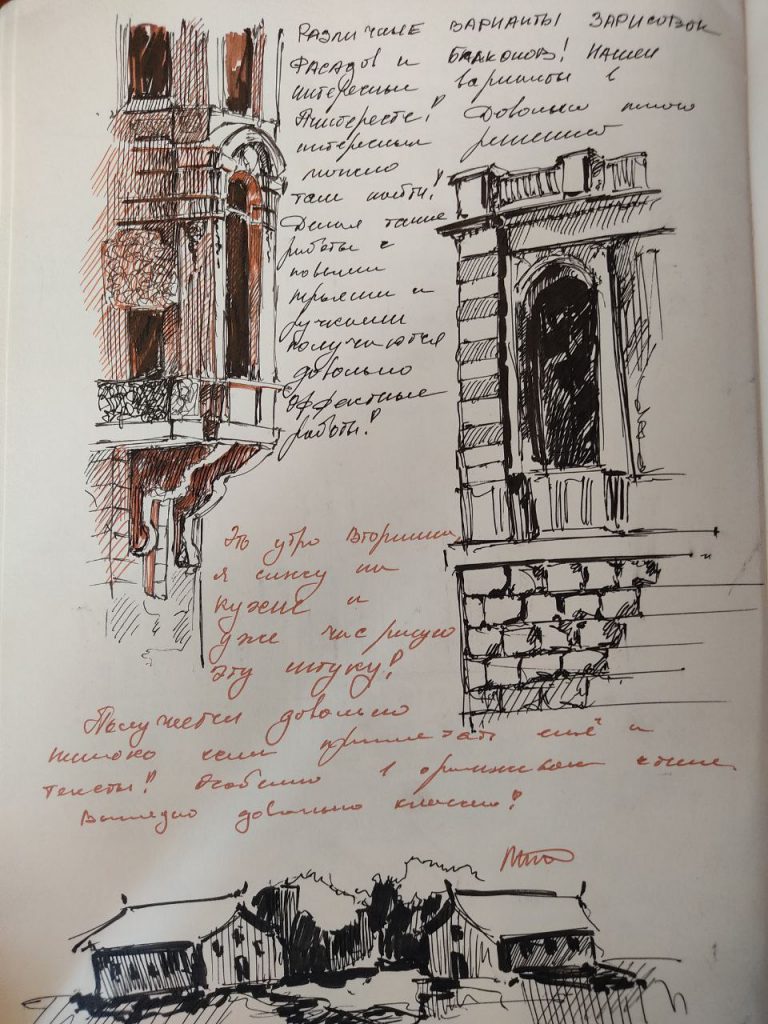 Различные варианты зарисовок
фасадов и балконов! Нашел
интересные варианты в
Пинтересте! Довольно много
интересных решений
можно
там найти!
Делая такие
работы с
новыми
и
ручками
получаются
довольно
эффектные
работы!
Это утро вторника,
я сижу на
кухне и
уже час рисую
эту штуку!
Получается довольно
если ещё и
тексты! Особенно в оранжевом
Выглядит довольно классно!